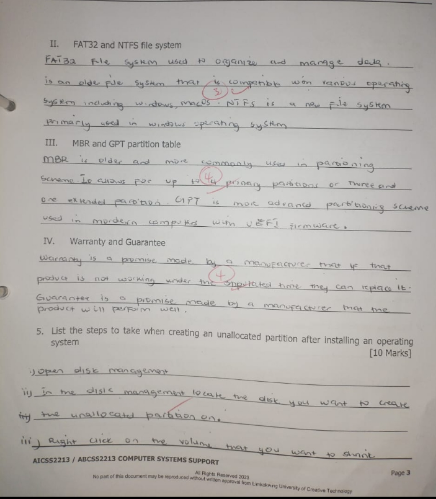 II. FAT32 and NTFS file system
FAT32 File system used to organize and manage data.
is an older file system that is compatible with various operating
system including windows, macos. NTFS is a new file system
Primarly used in windows operating system
3
III. MBR and GPT partition table
MBR is older and more commonly used in partioning
scheme It allows for up to 4 primary partitions or three and
one extended partition GPT is more advanced partitioning scheme
used in computers with firmware.
4
IV. Warranty and Guarantee
Warranty is a promise made by a manufacturer that if that
product is not working under the time they can replace it.
4
Guarantee is a promise made by a manufacturer that the
product will perform well.
5. List the steps to take when creating an unallocated partition after installing an operating
system
[10 Marks]
i) open disk management
ii) in the disk management locate the disk you want to create
the unallocated partition on.
iii) Right click on the volume that you want to
AICSS2213 / ABCSS2213 COMPUTER SYSTEMS SUPPORT
Page 3
All Rights Reserved 2023
No part of this document may be reproduced without written approval from Limkokwing University of Creative Technology